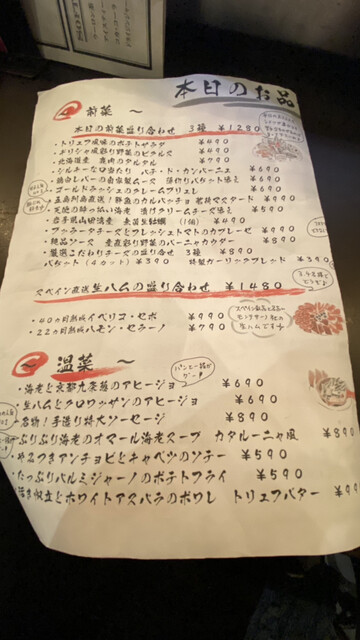 本日のお品
前菜 〜
本日の前菜盛り合わせ 3種 ¥1280
・トリュフ風味のポテトサラダ ¥490
・ギリシャ風彩り野菜のピクルス ¥490
・北海道産 真鱈のタルタル ¥790
・シルチーな口当たり パテ・ド・カンパーニュ
・鶏白レバーの自家製ムース 薄作りバケット添え ¥690
・ゴールドラッシュのクレームブリュレ ¥690
・五島列島直送!鮮魚のカルパッチョ 若桃マスタード ¥990
・天使の酔っ払い海老 漬けクリームチーズ添え ¥590
・岩手県山田湾産 生牡蠣
・ブッラータチーズとフレッシュトマトのカプレーゼ ¥990
・絶品ソース 農直彩り野菜のバーニャカウダー ¥890
・厳選こだわりチーズの盛り合せ 3種 ¥890
バケット(4カット)¥390 特製ガーリックブレッド ¥390
スペイン直送生ハムの盛り合わせ ¥1480
・40ヵ月熟成イベリコ・セボ ¥990
・22ヵ月熟成ハモン・セラーノ ¥790
スペイン
生ハムです
温菜 〜
・海老と京都九条葱のアヒージョ ¥690
・生ハムとクロワッサンのアヒージョ ¥690
・名物!手造り特大ソーセージ ¥890
・ぷりぷり海老のオマール海老スープ カタルーニャ風 ¥89
・やみつきアンチョビとキャベツのソテー ¥590
・たっぷりパルミジャーノのポテトフライ ¥590
帆立とホワイトアスパラのポワレ トリュフバター ¥99